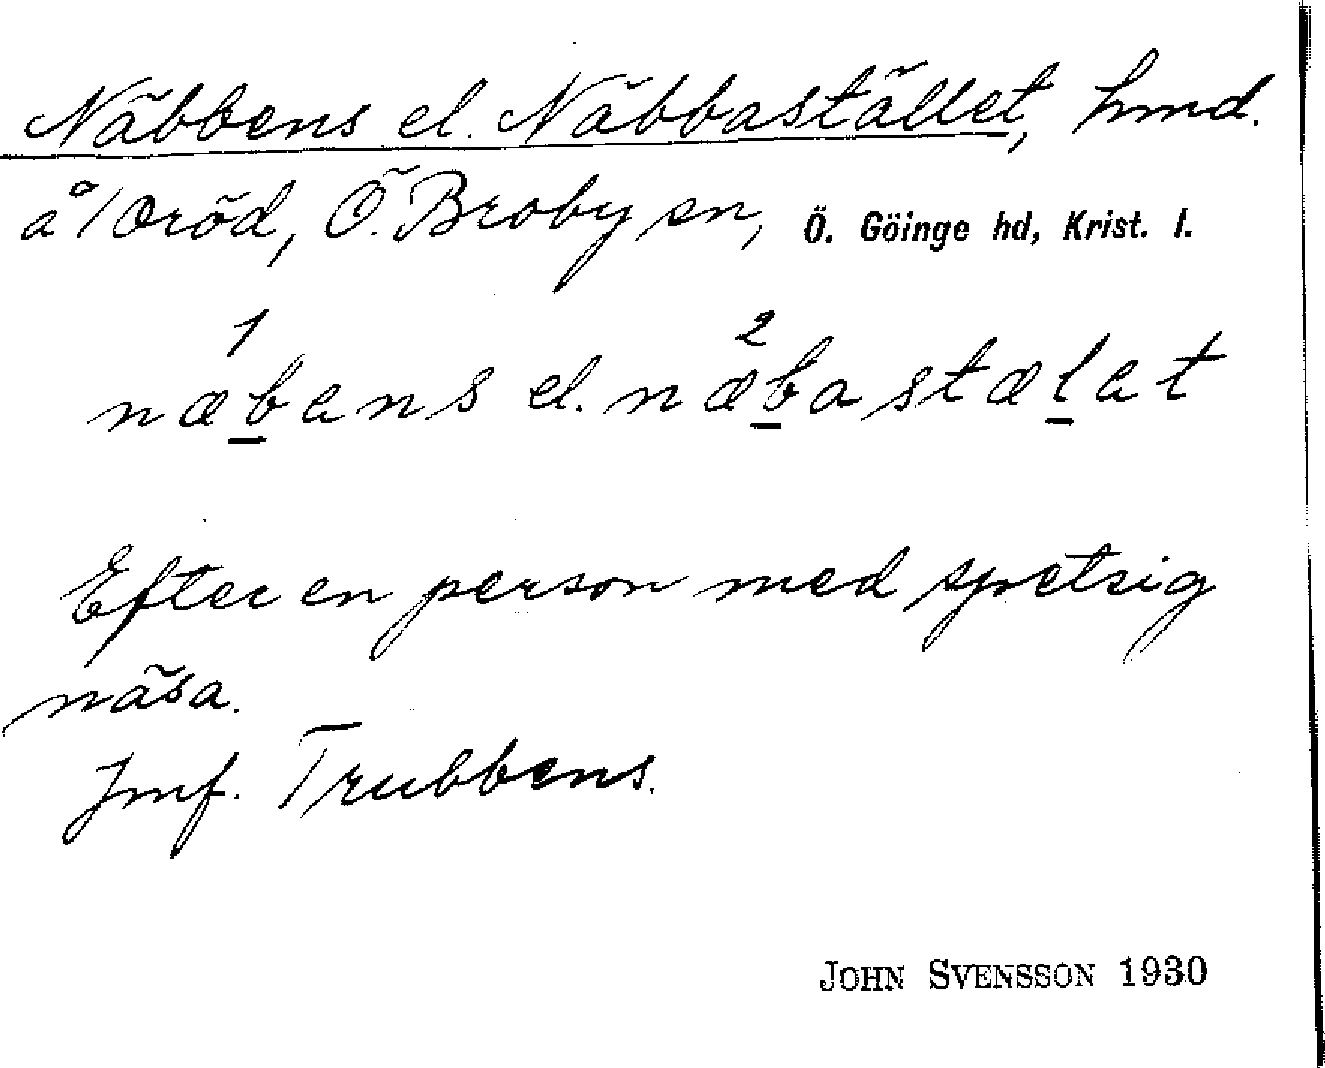 Näbbens el. Näbbastället, hmd.
å /Oröd, Ö. Broby sn, Ö. Göinge hd, Krist. l.
1 2
næbens el. næbastælet
Efter en person med spetsig
näsa.
Jmf. Trubbens.
JOHN SVENSSON 1930